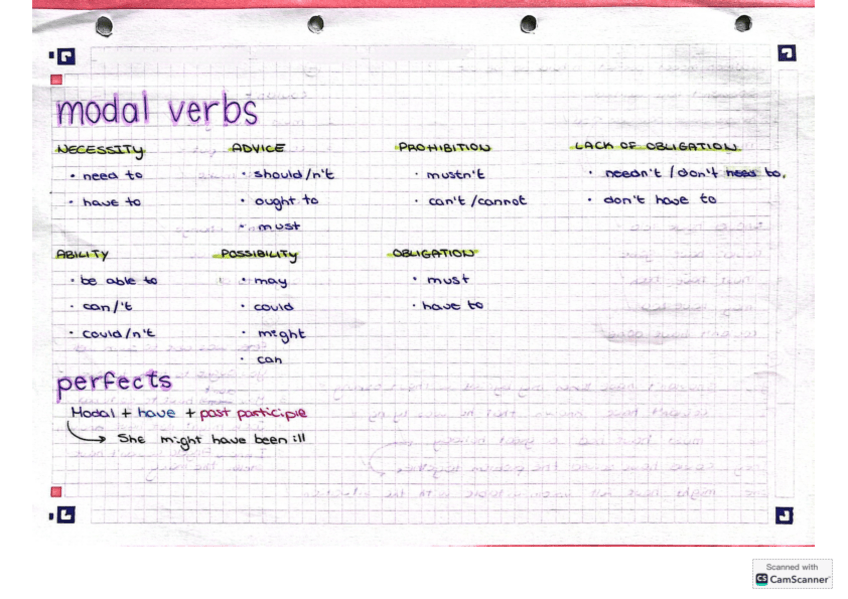 modal verbs
NECESSITY
• need to
• have to
ADVICE
• should/n't
• ought to
• must
PROHIBITION
• mustn't
• can't/cannot
LACK OF OBLIGATION
• needn't / don't need to.
• don't have to
ABILITY
• be able to
• can/'t
• could/n't
POSSIBILITY
• may
• could
• might
• can
OBLIGATION
• must
• have to
perfects
Modal + have + past participle
She might have been ill
Scanned with
CS CamScanner